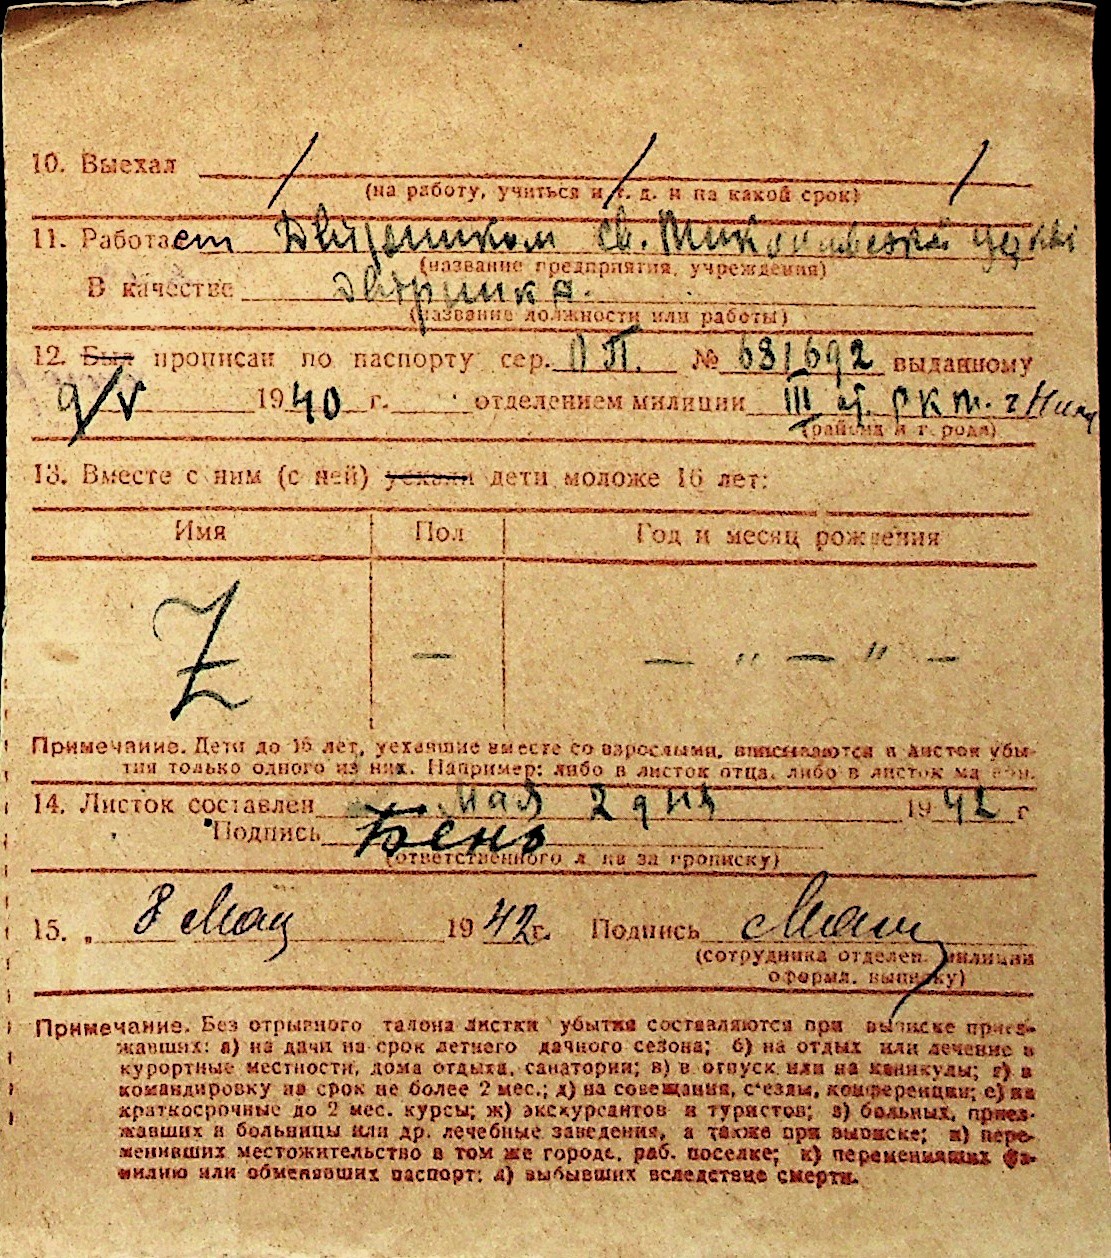 10. Выехал
(на работу, учиться и т. д. и на какой срок)
11. Работает Дворником св. Миколаевской
(название предприятия, учреждения)
В качестве дворника.
(название должности или работы)
12. Был прописан по паспорту сер. П. № 631692 выданному
9/V 1940 г. отделением милиции III
(района и города)
13. Вместе с ним (с ней) уехали дети моложе 16 лет:
Имя Пол Год и месяц рождения
Z — — " — " —
Примечание. Дети до 16 лет, уехавшие вместе со взрослыми, вписываются в листок убы-
тия только одного из них. Например: либо в листок отца, либо в листок матери.
14. Листок составлен мая 2 дня 1942 г
Подпись Бень
(ответственного л. ца за прописку)
15. „ 8 Мая 1942 г. Подпись
(сотрудника отделен. милиции
оформл. выписку)
Примечание. Без отрывного талона листки убытия составляются при выписке приез-
жавших: а) на дачи на срок летнего дачного сезона; б) на отдых или лечение в
курортные местности, дома отдыха, санатории; в) в отпуск или на каникулы; г) в
командировку на срок не более 2 мес.; д) на совещания, с'езды, конференции; е) на
краткосрочные до 2 мес. курсы; ж) экскурсантов и туристов; з) больных, приез-
жавших в больницы или др. лечебные заведения, а также при выписке; и) пере-
менивших местожительство в том же городе, раб. поселке; к) переменивших фа-
милию или обменявших паспорт; л) выбывших вследствие смерти.